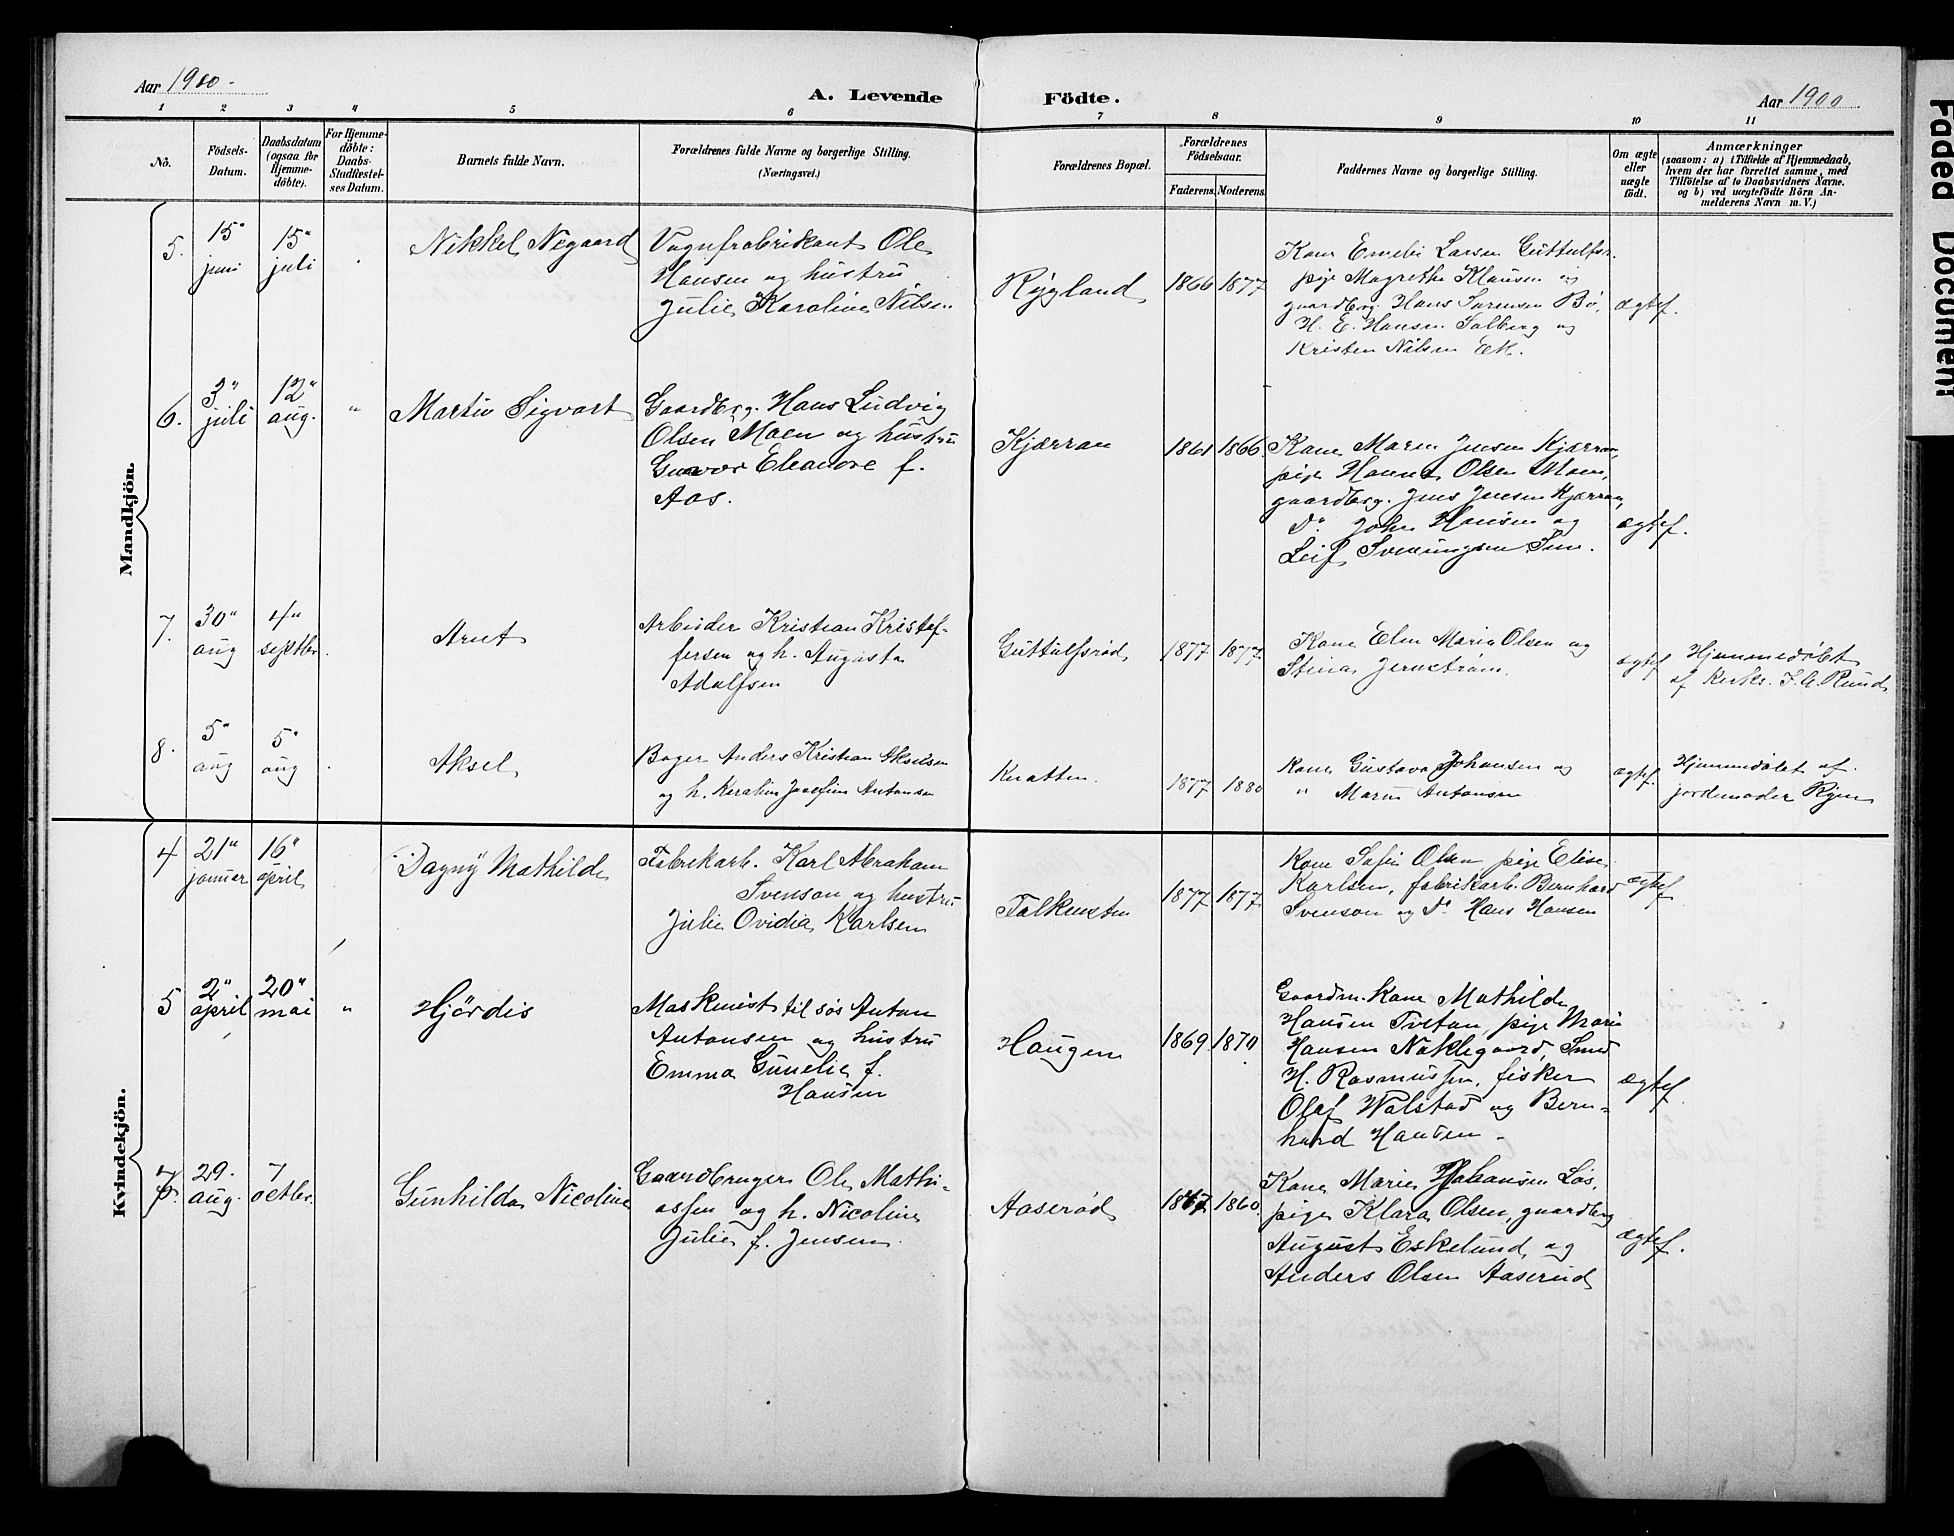 Aar 1900-
A. Levende Födte.
Aar 1900
1 2 3 4 5 6 7 8 9 10 11
Nò.
Födsels-
Datum.
Daabsdatum
(ogsaa for
Hjemme-
döbte).
For Hjemme-
döbte:
Daabs-
Stadfæstel-
ses Datum.
Barnets fulde Navn.
Forældrenes fulde Navne og borgerlige Stilling.
(Næringsvei.)
Forældrenes Bopæl.
Forældrenes
Födselsaar.
Faderens. Moderens.
Faddernes Navne og borgerlige Stilling.
Om ægte
eller
uægte
födt.
Anmærkninger
(saasom: a) i Tilfælde af Hjemmedaab,
hvem der har forrettet samme, med
Tilföielse af to Daabsvidners Navne.
og b) ved uægtefödte Börn An-
melderens Navn m. V.)
Mandkjön.
5.
15"
juni
15"
juli
Nikkel Negaard
Vognfabrikant Ole
Hansen og hustru
Julie Karoline Nilsen
Rygland
1866 1877
Kone Emelie Larsen Guttulfsr.
pige Magrethe Klausen og
gaardbrg. Hans Sørensen Bø,
H. E. Hansen Solberg og
Kristen Nilsen Ek.
ægtef.
6.
3"
juli
12"
aug.
"
Martin Sigvart
Gaardbrg. Hans Ludvig
Olsen Moen og hustru
Gunvor Eleanore f.
Aas.
Kjærran
1861 1866.
Kone Maren Jensen Kjærran,
pige Hanna Olsen Moen,
gaardbrg. Jens Jensen Kjærran,
Do John Hansen og
Leif Svenungsen
ægtef.
7.
30"
aug
4"
septbr.
Arnt
Arbeider Kristian Kristof-
fersen og h. Augusta
Adolfsen
Guttulfsrød
1877 1877.
Kone Elen Maria Olsen og
Stina Jernstrøm.
ægtef
Hjemmedøbt
af Kirks. I. G. Rund
8.
5"
aug
5"
aug
Aksel
Bager Anders Kristian Akselsen
og h. Karoline Josefine Antonsen
Knatten.
1877 1880
Kone Gustava Johansen og
" Maren Antonsen
ægtef.
Hjemmedøbt af
jordemoder Ryen
Kvindekjön.
4
21"
januar
16"
april
Dagny Mathilde
Fabrikarb. Karl Abraham
Svenson og hustru
Julie Ovidia Karlsen
Falkensten
1877 1877.
Kone Sofie Olsen pige Elise
Karlsen, fabrikarb. Bernhard
Svenson og Do Hans Hansen
ægtef
5
2"
april
20"
mai
"
Hjørdis
Maskinist til søs Anton
Antonsen og hustru
Emma Gunelie f.
Hansen
Haugen
1869. 1870
Gaardm. Kone Mathilde
Hansen Tveten, pige Marie
Hansen Naklegaard, Smed
H. Rasmussen, fisker
Olaf Wolstad og Bern-
hard Hansen-
ægtef.
29.
aug.
7
octbr.
Gunhilda Nicoline
Gaardbruger Ole Mathi-
assen og h. Nicoline
Julie f. Jensen.
Aaserød
1860.
Kone Marie Johansen Løs,
pige Klara Olsen, gaardbrg
August Eskelund og
Anders Olsen Aaserud
ægtef.
Faded Document